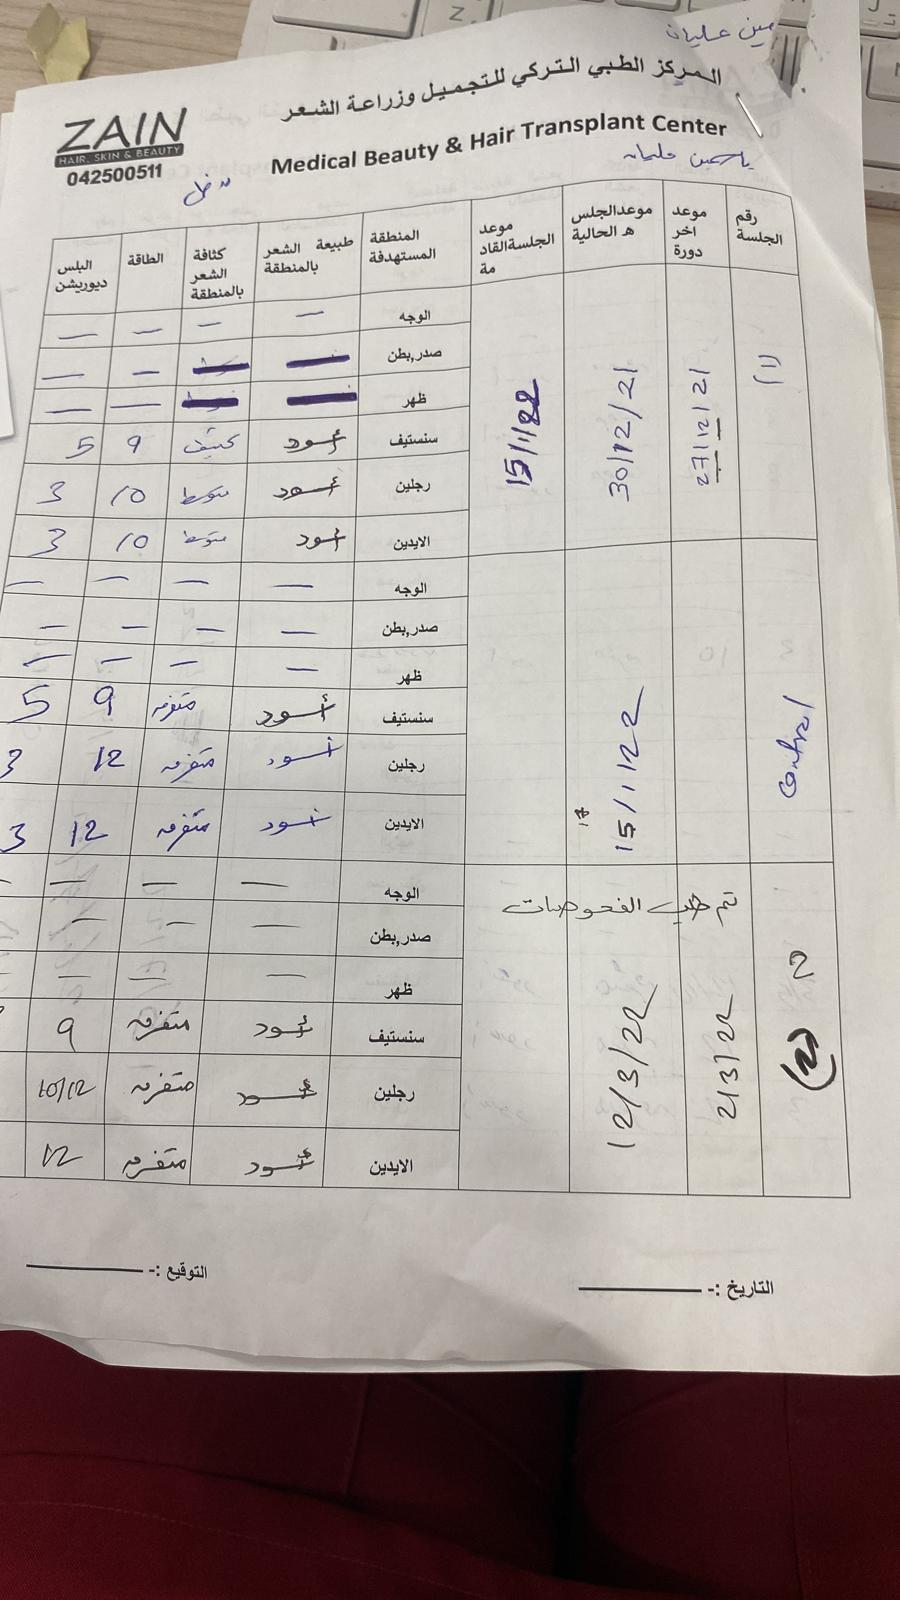 المركز الطبي التركي للتجميل وزراعة الشعر
ZAIN
HAIR, SKIN & BEAUTY
042500511
Medical Beauty & Hair Transplant Center
رقم الجلسة
موعد اخر دورة
موعدالجلس ه الحالية
موعد الجلسةالقاد مة
المنطقة المستهدفة
طبيعة الشعر بالمنطقة
كثافة الشعر بالمنطقة
الطاقة
البلس ديوريشن
(1) 27/12/21 30/12/21 15/1/22
الوجه — — — —
صدر,بطن — —
ظهر — —
سنستيف أسود كثيف 9 5
رجلين أسود متوسط 10 3
الايدين أسود متوسط 10 3
Control 15/1/22
الوجه — — — —
صدر,بطن — — — —
ظهر — — — —
سنستيف أسود متفرقه 9 5
رجلين أسود متفرقه 12 3
الايدين أسود متفرقه 12 3
تم طلب الفحوصات
2 (2) 2/3/22 12/3/22
الوجه — — —
صدر,بطن — — —
ظهر — — —
سنستيف أسود متفرقه 9
رجلين أسود متفرقه 10/12
الايدين أسود متفرقه 12
التاريخ :- ـــــــــ
التوقيع :- ـــــــــ